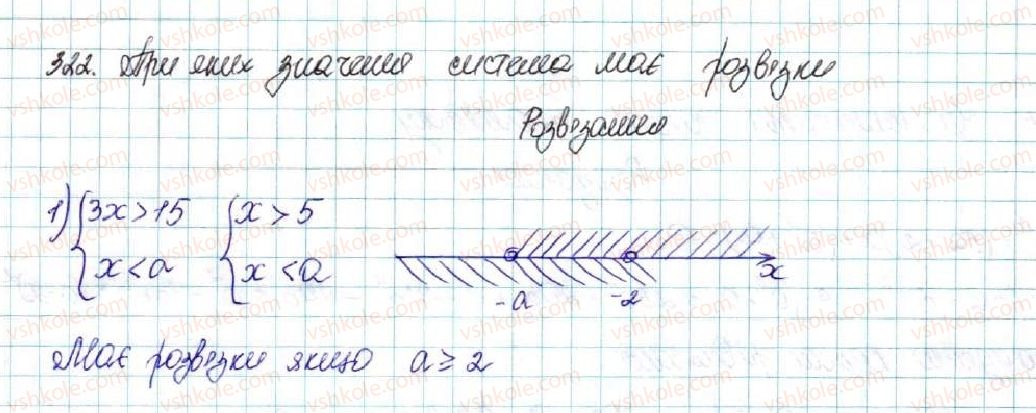 322. При яких значення система має розвязки
Розвязання
1) {3x > 15 {x > 5
{x < a {x < a
-a -2 x
Має розвязки якщо a ≥ 2